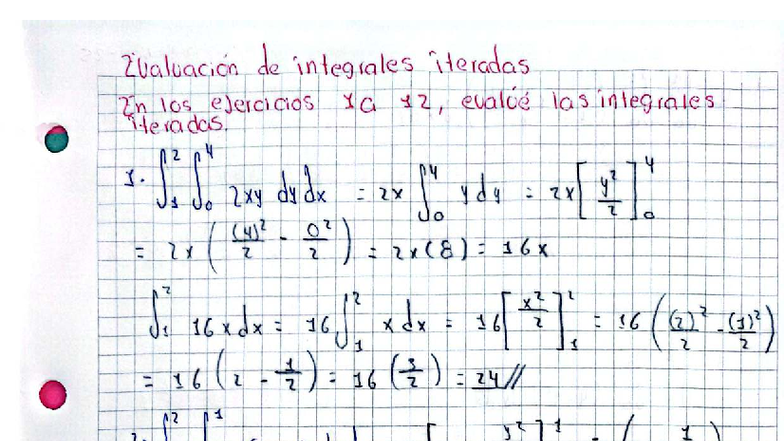 Evaluación de integrales iteradas
En los ejercicios 1 a 12, evalúe las integrales
iteradas.
1. ∫₁² ∫₀⁴ 2xy dy dx = 2x ∫₀⁴ y dy = 2x [y²/2]₀⁴
= 2x ((4)²/2 - 0²/2) = 2x(8) = 16x
∫₁² 16x dx = 16 ∫₁² x dx = 16 [x²/2]₁² = 16 ((2)²/2 - (1)²/2)
= 16 (2 - 1/2) = 16 (3/2) = 24//